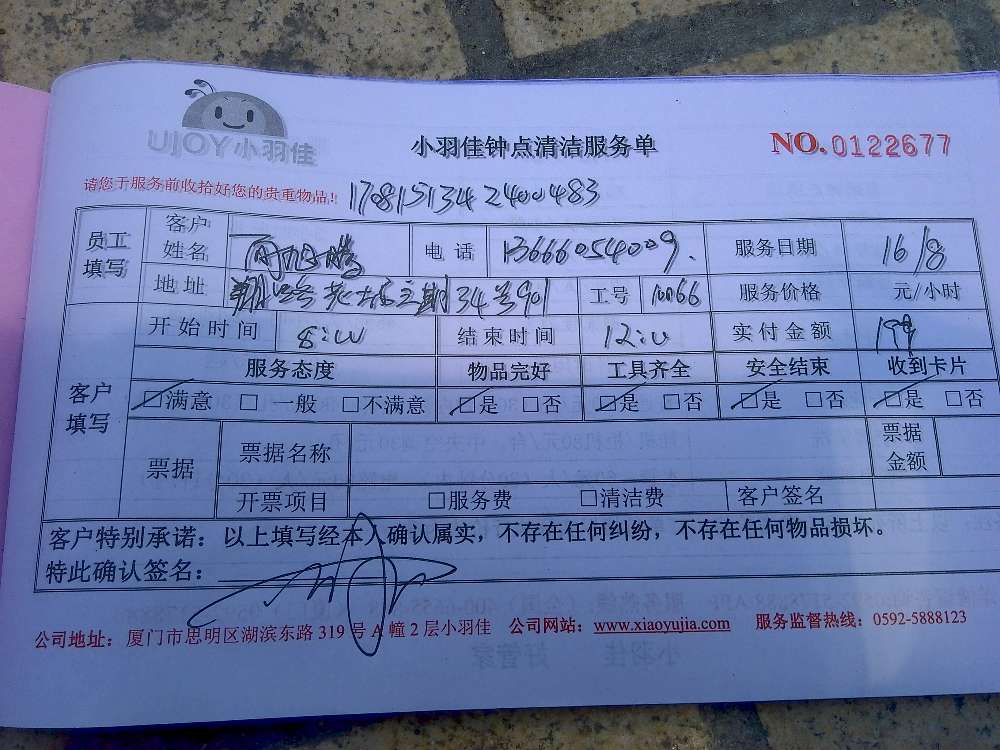 UJOY小羽佳
小羽佳钟点清洁服务单
NO.0122677
请您于服务前收拾好您的贵重物品!!
1708151342400483
员工填写
客户姓名
电话 13666054009.
服务日期 16/8
地址 34号901
工号 10066
服务价格 元/小时
客户填写
开始时间 8:00
结束时间 12:00
实付金额
服务态度 物品完好 工具齐全 安全结束 收到卡片
□满意 □一般 □不满意 □是 □否 □是 □否 □是 □否 □是 □否
票据
票据名称
票据金额
开票项目 □服务费 □清洁费 客户签名
客户特别承诺：以上填写经本人确认属实，不存在任何纠纷，不存在任何物品损坏。
特此确认签名：
公司地址：厦门市思明区湖滨东路319号A幢2层小羽佳 公司网站：www.xiaoyujia.com 服务监督热线：0592-5888123